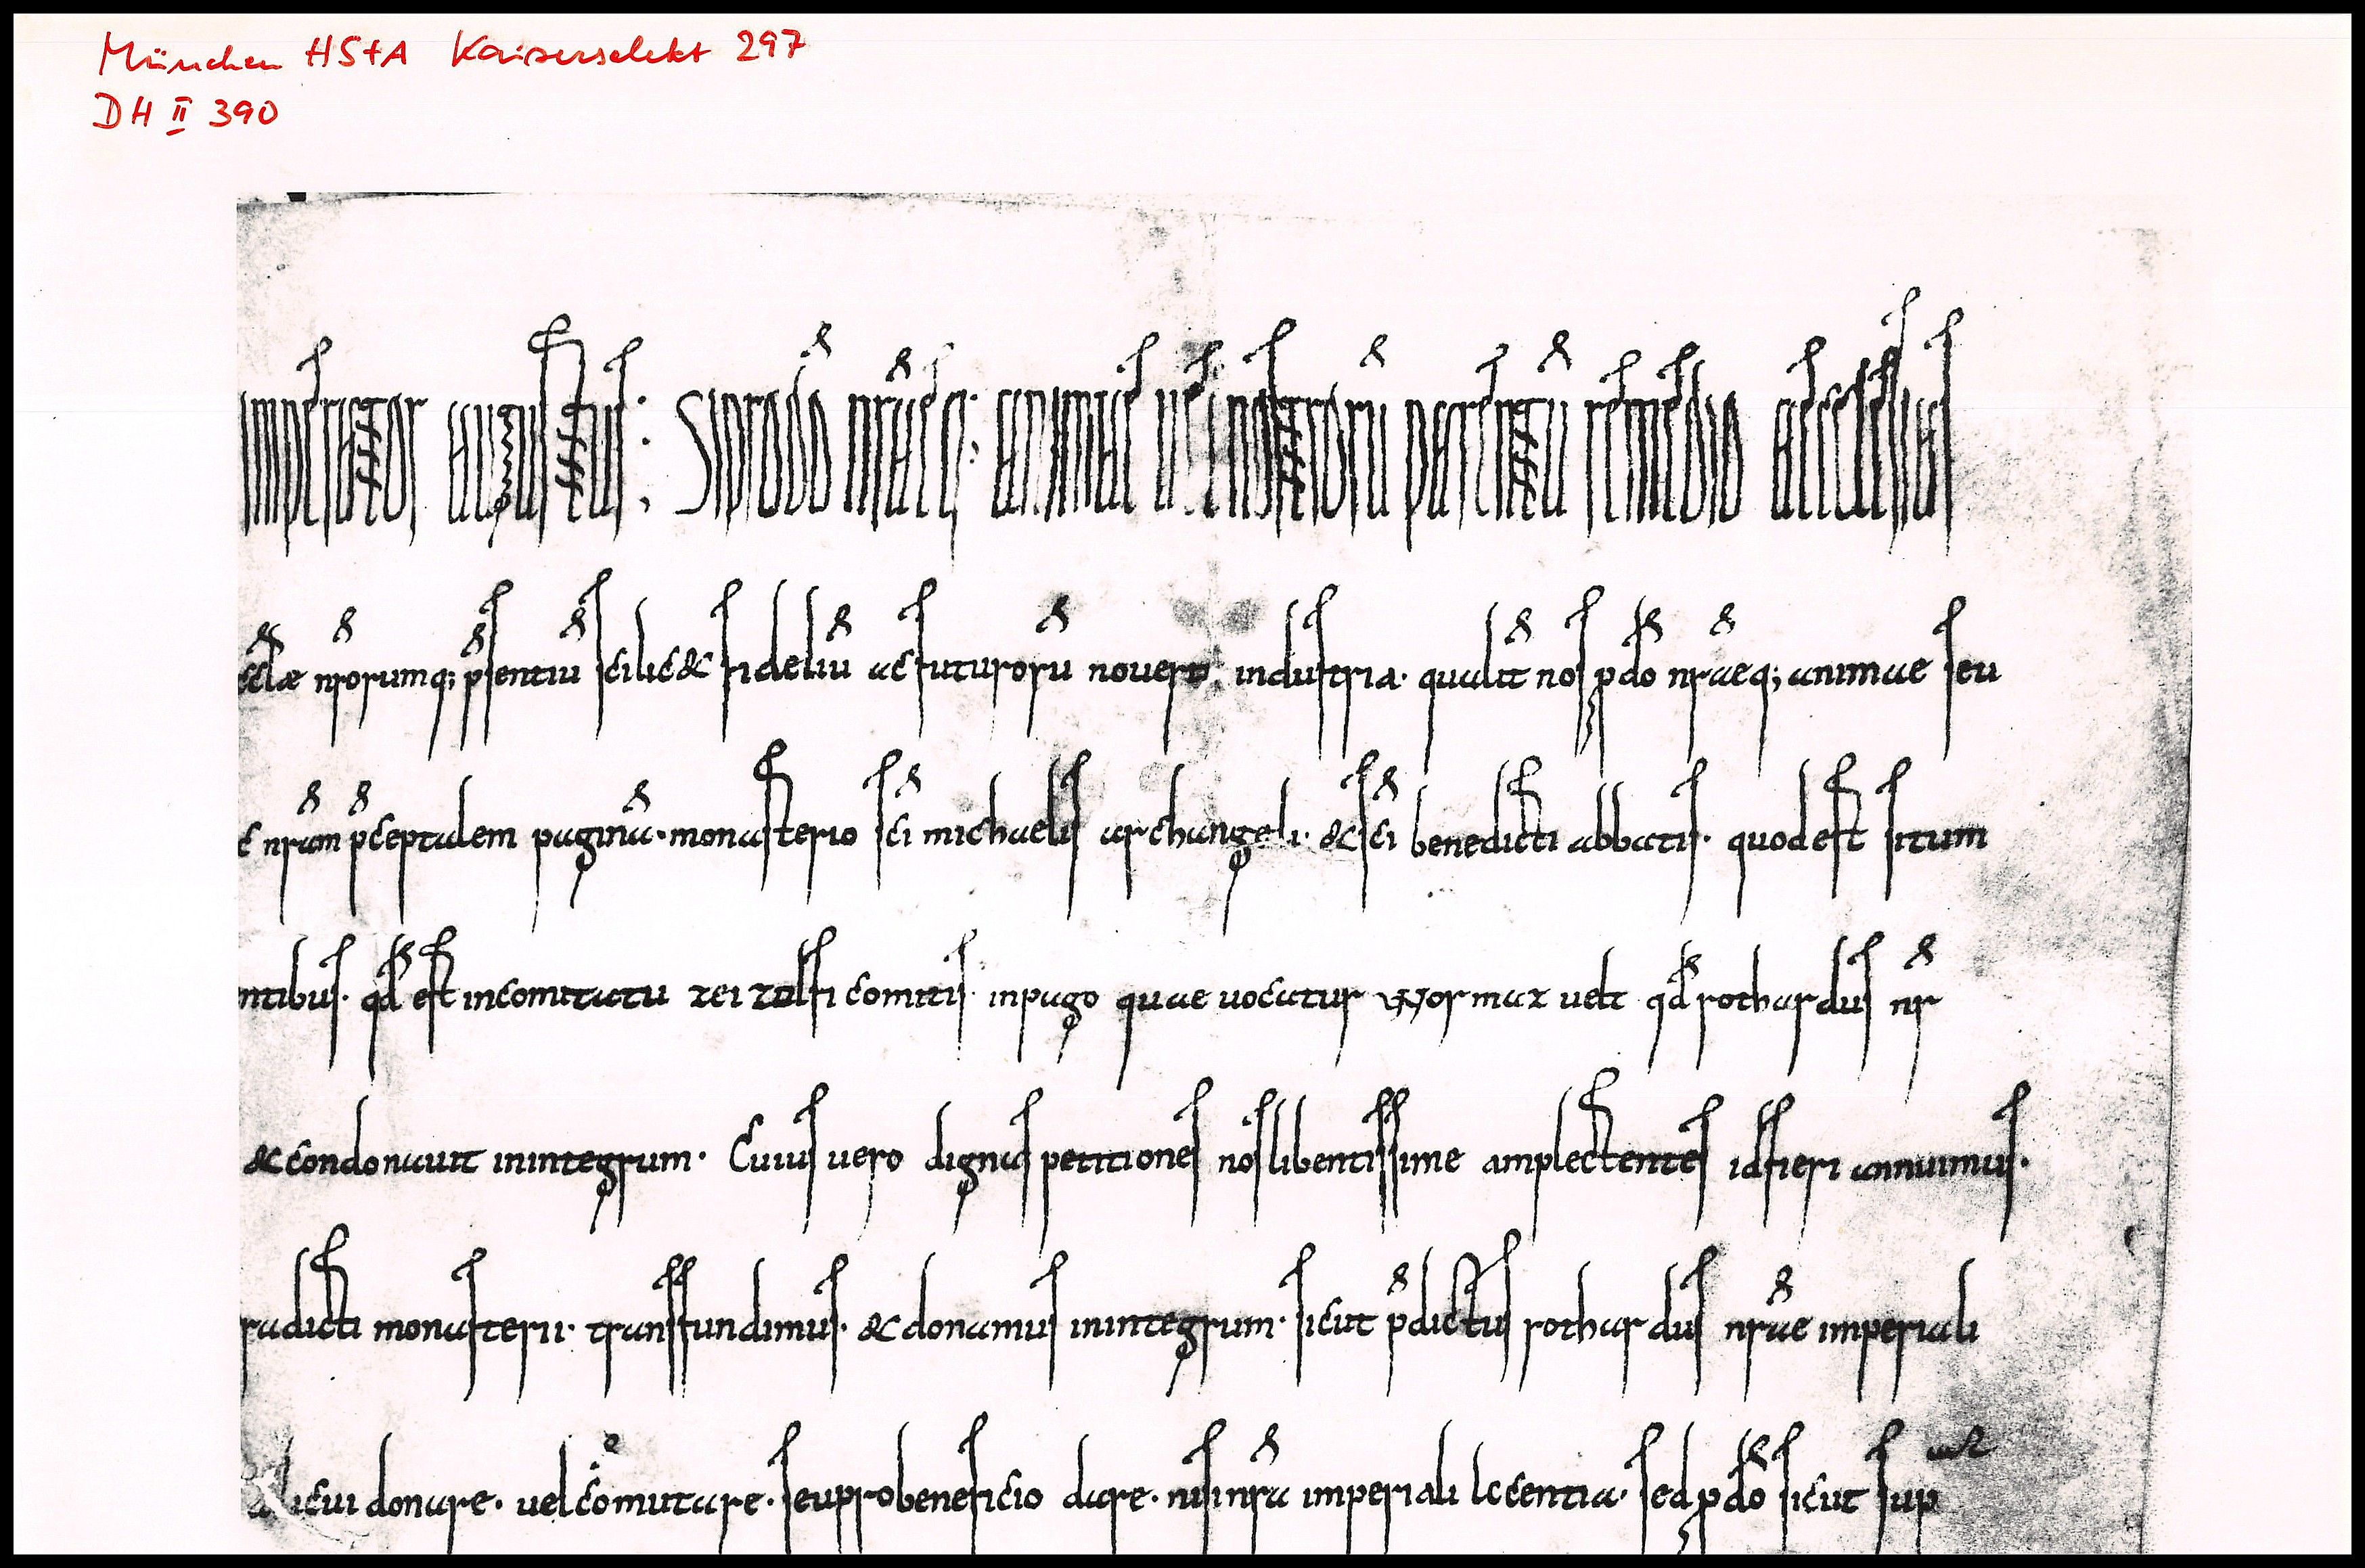 München HStA Kaiserselekt 297
DH II 390
imperator augustus. Si pro dō nr̄aeq; animae uel nostrorū parentū remedio aecclesias
eccl̄ae nr̄orumq; p̄sentiū scilic& fideliū ac futurorū noverit industria. qualit̄ nos p dō nr̄aeq; animae seu
c nr̄am p̄ceptalem paginā. monasterio sc̄i michaelis archangeli. & sc̄i benedicti abbatis. quod est situm
ntibus. qd̄ est in comitatu reizolfi comitis. in pago quae uocatur wormazuelt qd̄ rothardus nr̄
& condonauit in integrum. Cuius uero dignas petitiones nos libentissime amplectentes id fieri annuimus.
radicti monasterii. transfundimus. & donamus in integrum. sicut p̄dictus rothardus nr̄ae imperiali
alicui donare. uel cōmutare. seu pro beneficio dare. nisi nr̄a imperiali licentia. sed p dō sicut sup